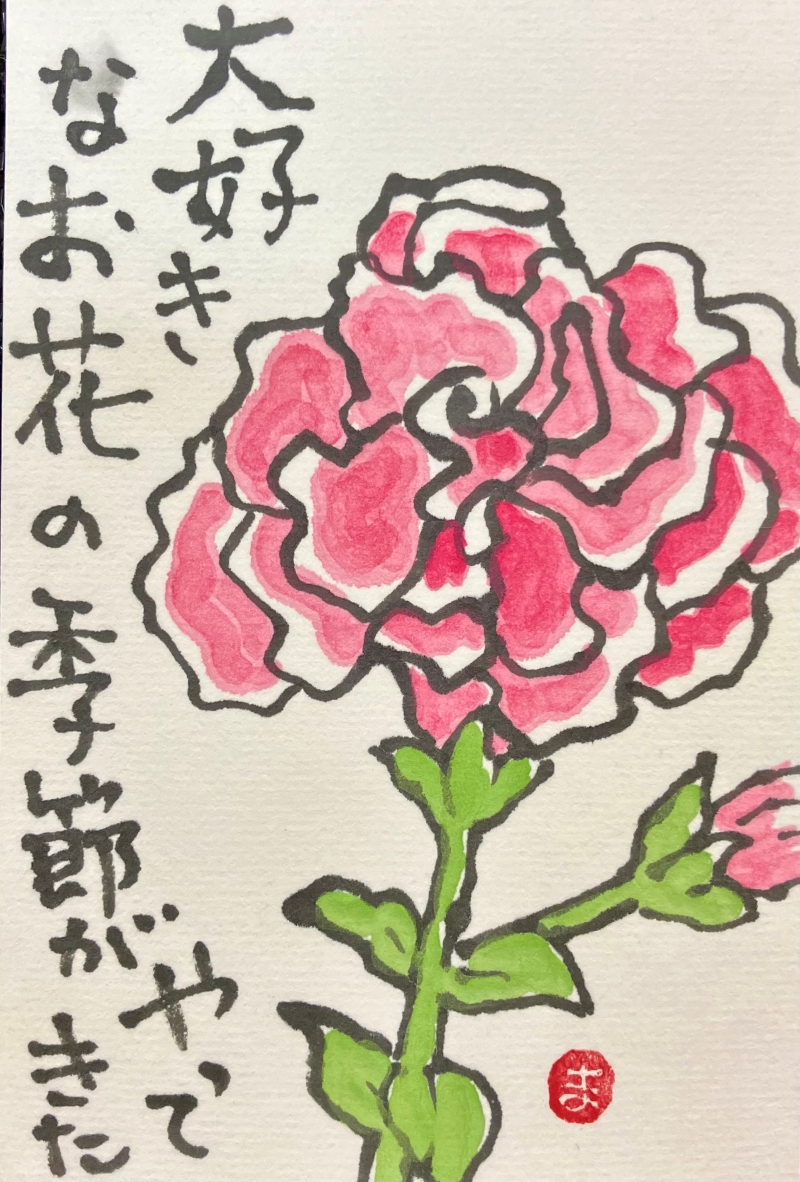 大好き
なお花の季節が
やって
きた
ま